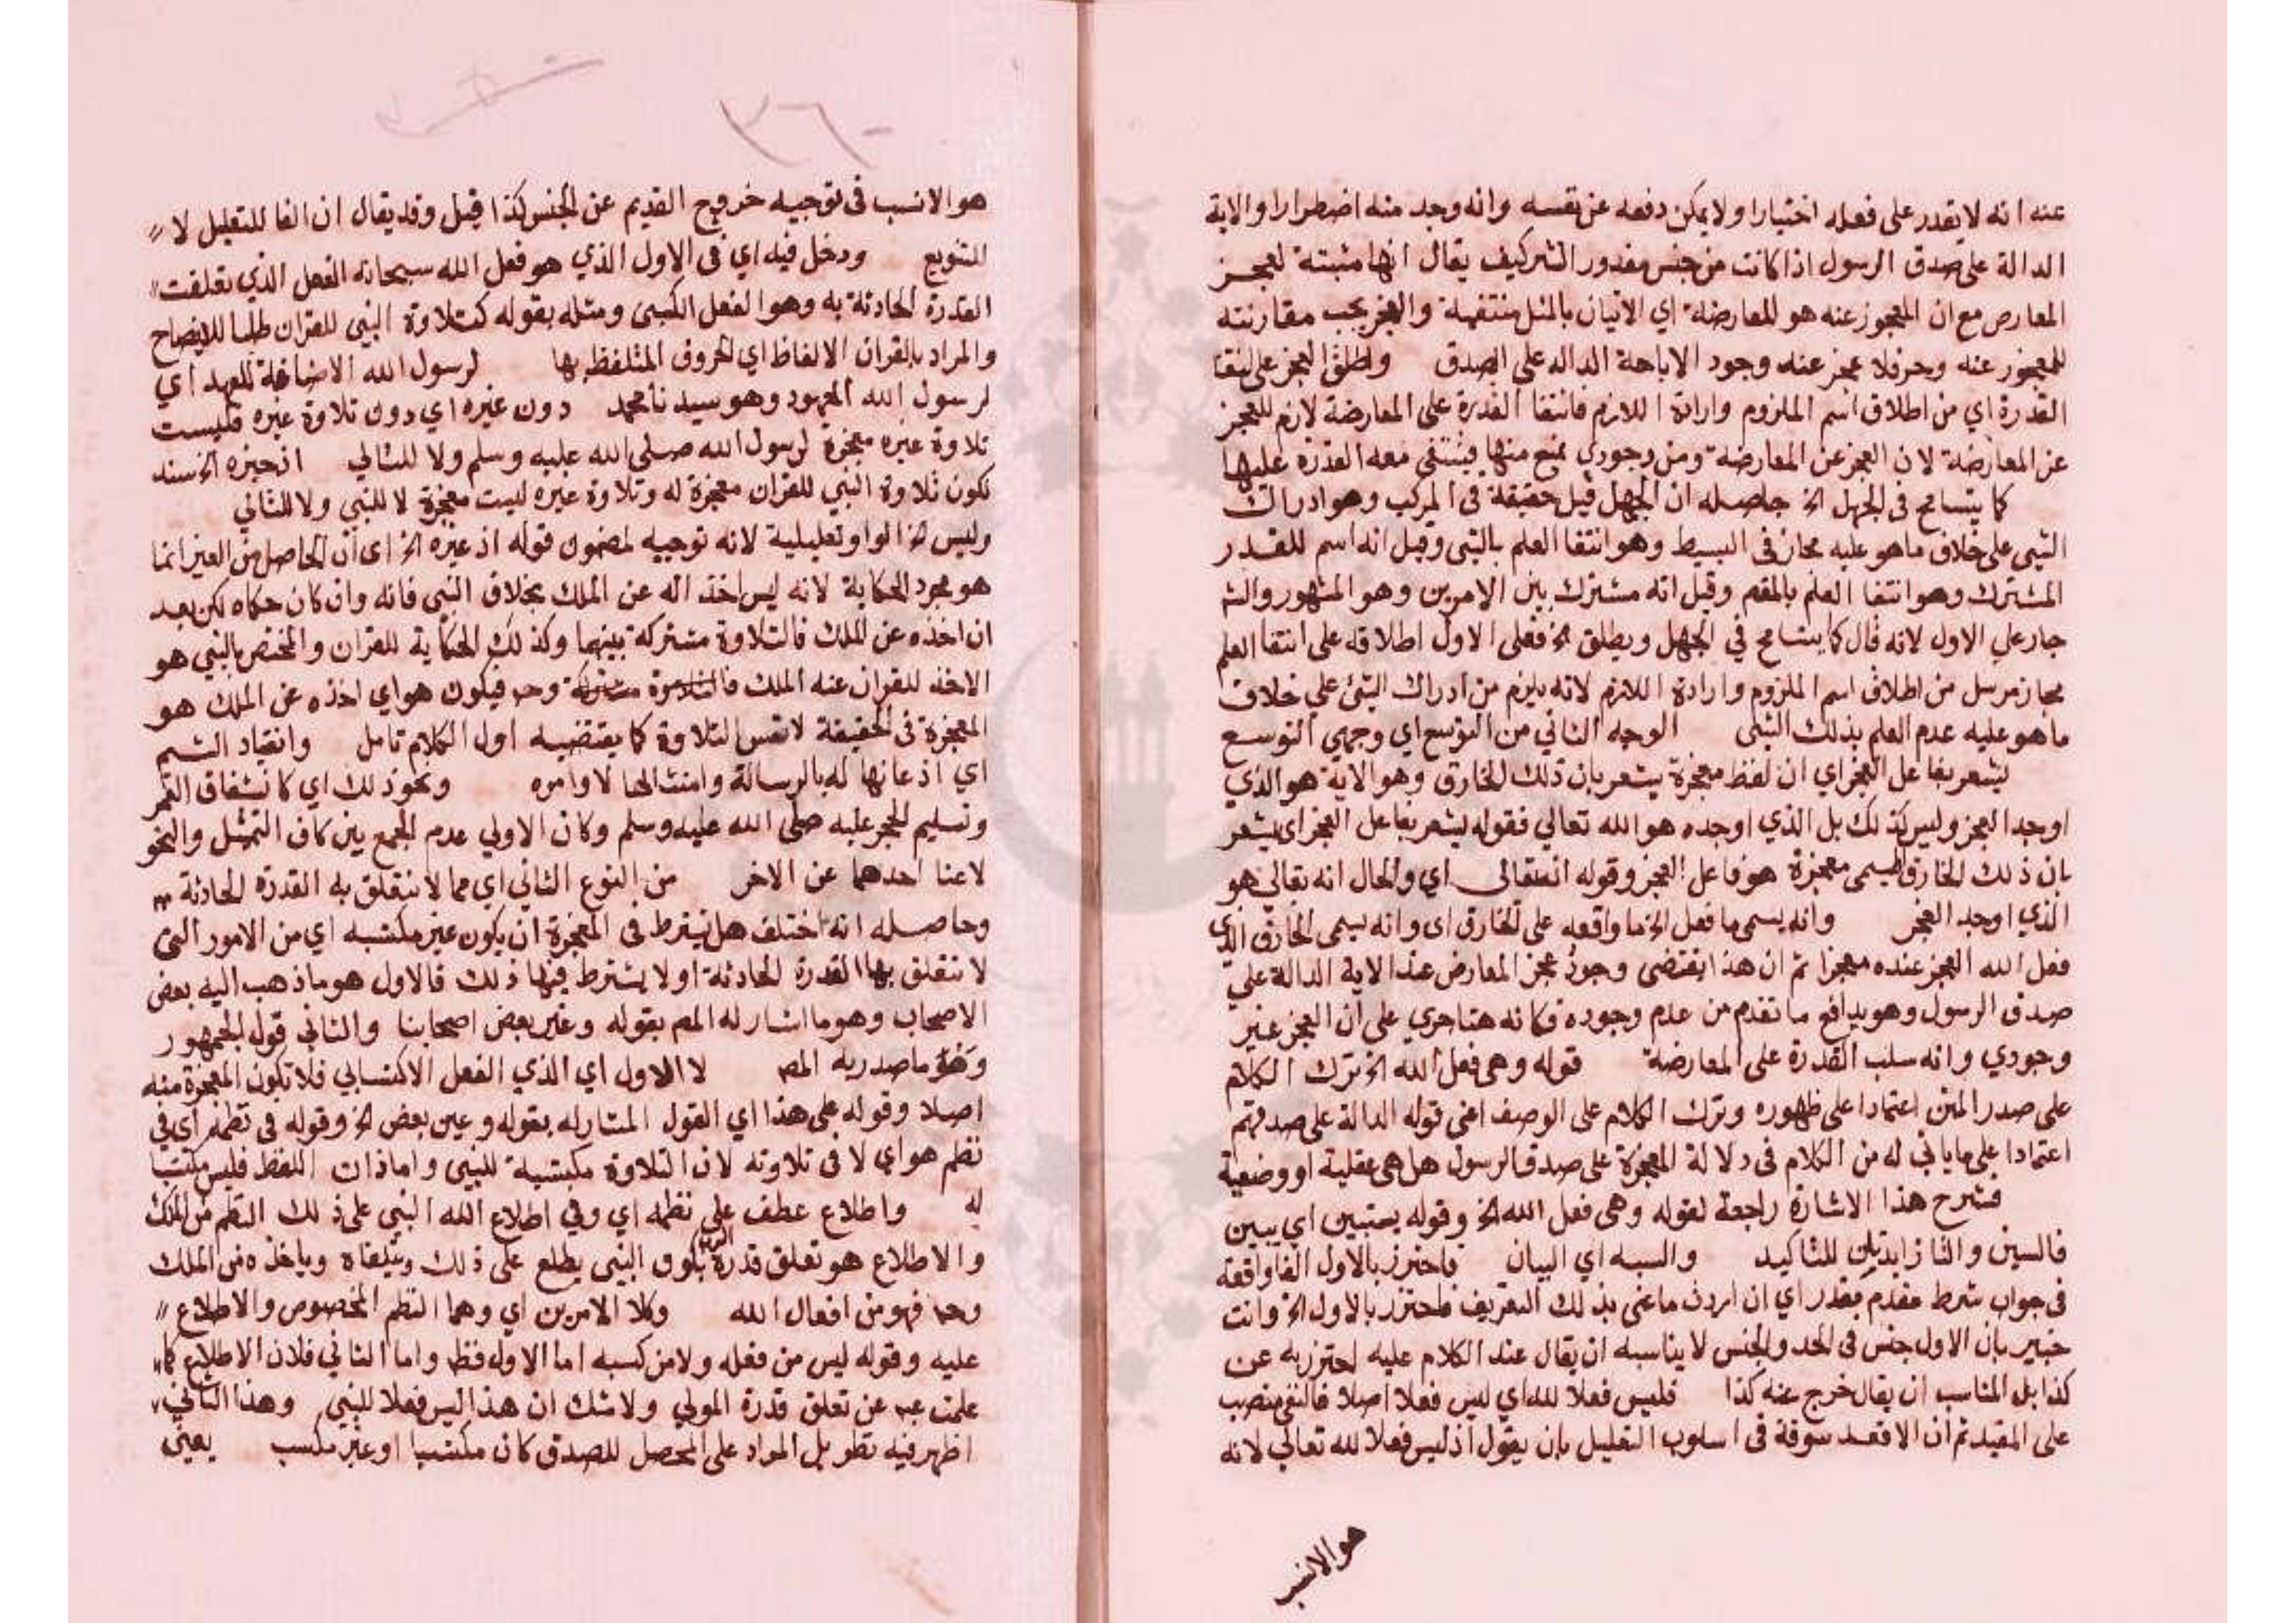 عنه انه لا يقدر على فعله اختيارا ولا يمكن دفعه عن نفسه وانه وجد منه اضطرارا والاية
الدالة على صدق الرسول اذا كانت من جنس مقدور البشر كيف يقال انها مثبتة لعجز
المعارض مع ان المعجوز عنه هو المعارضة اي الاتيان بالمثل منتفية والعجز يجب مقارنته
للمعجوز عنه وح فلا عجز عنه وجود الاباحة الداله على الصدق واطلق العجز على انتفا
القدرة اي من اطلاق اسم الملزوم وارادة اللازم فانتفا القدرة على المعارضة لازم للعجز
عن المعارضة لان العجز عن المعارضة ومن وجودي يمنع منها فينتفي معه القدرة عليها
كما يتسامح في الجهل الخ حاصله ان الجهل قيل حقيقة في المركب وهو ادراك
الشي على خلاف ما هو عليه مجاز في البسيط وهو انتفا العلم بالشي وقيل انه اسم للقدر
المشترك وهو انتفا العلم بالمقم وقيل انه مشترك بين الامرين وهو المشهور والش
جار على الاول لانه قال كما يتسامح في الجهل ويطلق الخ فعلى الاول اطلاقه على انتفا العلم
مجاز مرسل من اطلاق اسم الملزوم وارادة اللازم لانه يلزم من ادراك الشئ على خلاف
ما هو عليه عدم العلم بذلك الشي الوجه الثاني من التوسع اي وجهي التوسع
يشعر بفاعل العجز اي ان لفظ معجزة يشعر بان ذلك الخارق وهو الاية هو الذي
اوجد العجز وليس كذلك بل الذي اوجده هو الله تعالى فقوله يشعر بفاعل العجز اي يشعر
بان ذلك الخارق المسمى معجزة هو فاعل العجز وقوله انه تعالى اي والحال انه تعالى هو
الذي اوجد العجز وانه يسمى ما فعل الخ ما واقعه على الخارق اي وانه يسمى الخارق الذي
فعل الله العجز عنده معجزا ثم ان هذا يقتضي وجود عجز المعارض عند الاية الدالة على
صدق الرسول وهو يدافع ما تقدم من عدم وجوده فكانه هنا جري على ان العجز غير
وجودي وانه سلب القدرة على المعارضة قوله وهي فعل الله الخ ترك الكلام
على صدر المتن اعتمادا على ظهوره وترك الكلام على الوصف اعني قوله الدالة على صدقهم
اعتمادا على ما ياتي له من الكلام في دلالة المعجزة على صدق الرسول هل هي عقلية او وضعية
فشرح هذا الاشارة راجعة لقوله وهي فعل الله الخ وقوله يستبين اي يبين
فالسين والتا زايدتان للتاكيد والسبه اي البيان فاحترز بالاول الفا واقعة
في جواب شرط مقدم مقدر اي ان اردت ما عنى بذلك التعريف فاحترز بالاول الخ وانت
خبير بان الاول جنس في الحد والجنس لا يناسبه ان يقال عند الكلام عليه احترز به عن
كذا بل المناسب ان يقال خرج عنه كذا فليس فعلا لله اي ليس فعلا اصلا فالنفي منصب
على المقيد ثم ان الاقعد سوقة في اسلوب التعليل بان يقول اذ ليس فعلا لله تعالى لانه
هو الانسب
٣٦٠
هو الانسب في توجيه خروج القديم عن الجنس كذا قيل وقد يقال ان الفا للتعليل لا
للتنويع ودخل فيه اي في الاول الذي هو فعل الله سبحانه الفعل الذي تعلقت
القدرة الحادثة به وهو الفعل الكسبي ومثله بقوله كتلاوة النبي للقران طلبا للايضاح
والمراد بالقران الالفاظ اي الحروف المتلفظ بها لرسول الله الاضافة للعهد اي
لرسول الله المعهود وهو سيدنا محمد دون غيره اي دون تلاوة غيره فليست
تلاوة غيره معجزة لرسول الله صلى الله عليه وسلم ولا للتالي اذ غيره الخ سند
لكون تلاوة النبي للقران معجزة له وتلاوة غيره ليست معجزة لا للنبي ولا للتالي
وليس الواو تعليلية لانه توجيه لمضمون قوله اذ غيره الخ اي ان الحاصل من الغير انما
هو مجرد الحكاية لانه ليس اخذا له عن الملك بخلاف النبي فانه وان كان حكاه لكن بعد
ان اخذه عن الملك فالتلاوة مشتركة بينهما وكذلك الحكاية للقران والمختص بالنبي هو
الاخذ للقران عنه الملك وح فيكون هو اي اخذه عن الملك هو
المعجزة في الحقيقة لا نفس التلاوة كما يقتضيه اول الكلام تامل وانقياد الشجر
اي اذعانها له بالرسالة وامتثالها لاوامره ونحو ذلك اي كانشقاق القمر
وتسليم الحجر عليه صلى الله عليه وسلم وكان الاولى عدم الجمع بين كاف التمثيل والنحو
لاغنا احدهما عن الاخر من النوع الثاني اي مما لا تتعلق به القدرة الحادثة
وحاصله انه اختلف هل يشترط في المعجزة ان يكون غير مكتسبه اي من الامور التي
لا تتعلق بها القدرة الحادثة او لا يشترط فيها ذلك فالاول هو ما ذهب اليه بعض
الاصحاب وهو ما اشار له المص بقوله وعين بعض اصحابنا والثاني قول الجمهور
وهو ما صدر به المص لا الاول اي الذي الفعل الاكتسابي فلا تكون المعجزة منه
اصلا وقوله على هذا اي القول المشار له بقوله وعين بعض الخ وقوله في نظمه اي في
نظم هو اي لا في تلاوته لان التلاوة مكتسبة للنبي واما ذات اللفظ فليس مكتسبا
له واطلاع عطف على نظمه اي وفي اطلاع الله النبي على ذلك النظم من الملك
والاطلاع هو تعلق قدرة بكون النبي يطلع على ذلك ويتلقاه وياخذه من الملك
وح فهو من افعال الله وكلا الامرين اي وهما النظم المخصوص والاطلاع
عليه وقوله ليس من فعله ولا من كسبه اما الاول فظ واما الثاني فلان الاطلاع كما
علمت عبه عن تعلق قدرة المولى ولا شك ان هذا ليس فعلا للنبي وهذا الثاني
اظهر فيه تطويل المراد على المحصل للصدق كان مكتسبا او غير مكتسب يعني